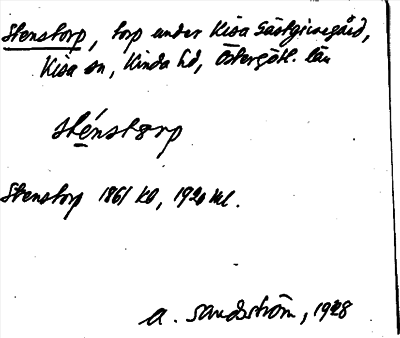 Stenstorp, torp under Kisa Gästgivaregård,
Kisa sn, Kinda hd, Östergötl. län
sténstorp
Stenstorp 1861 kb, 1920 ml.
A. Sandström, 1928